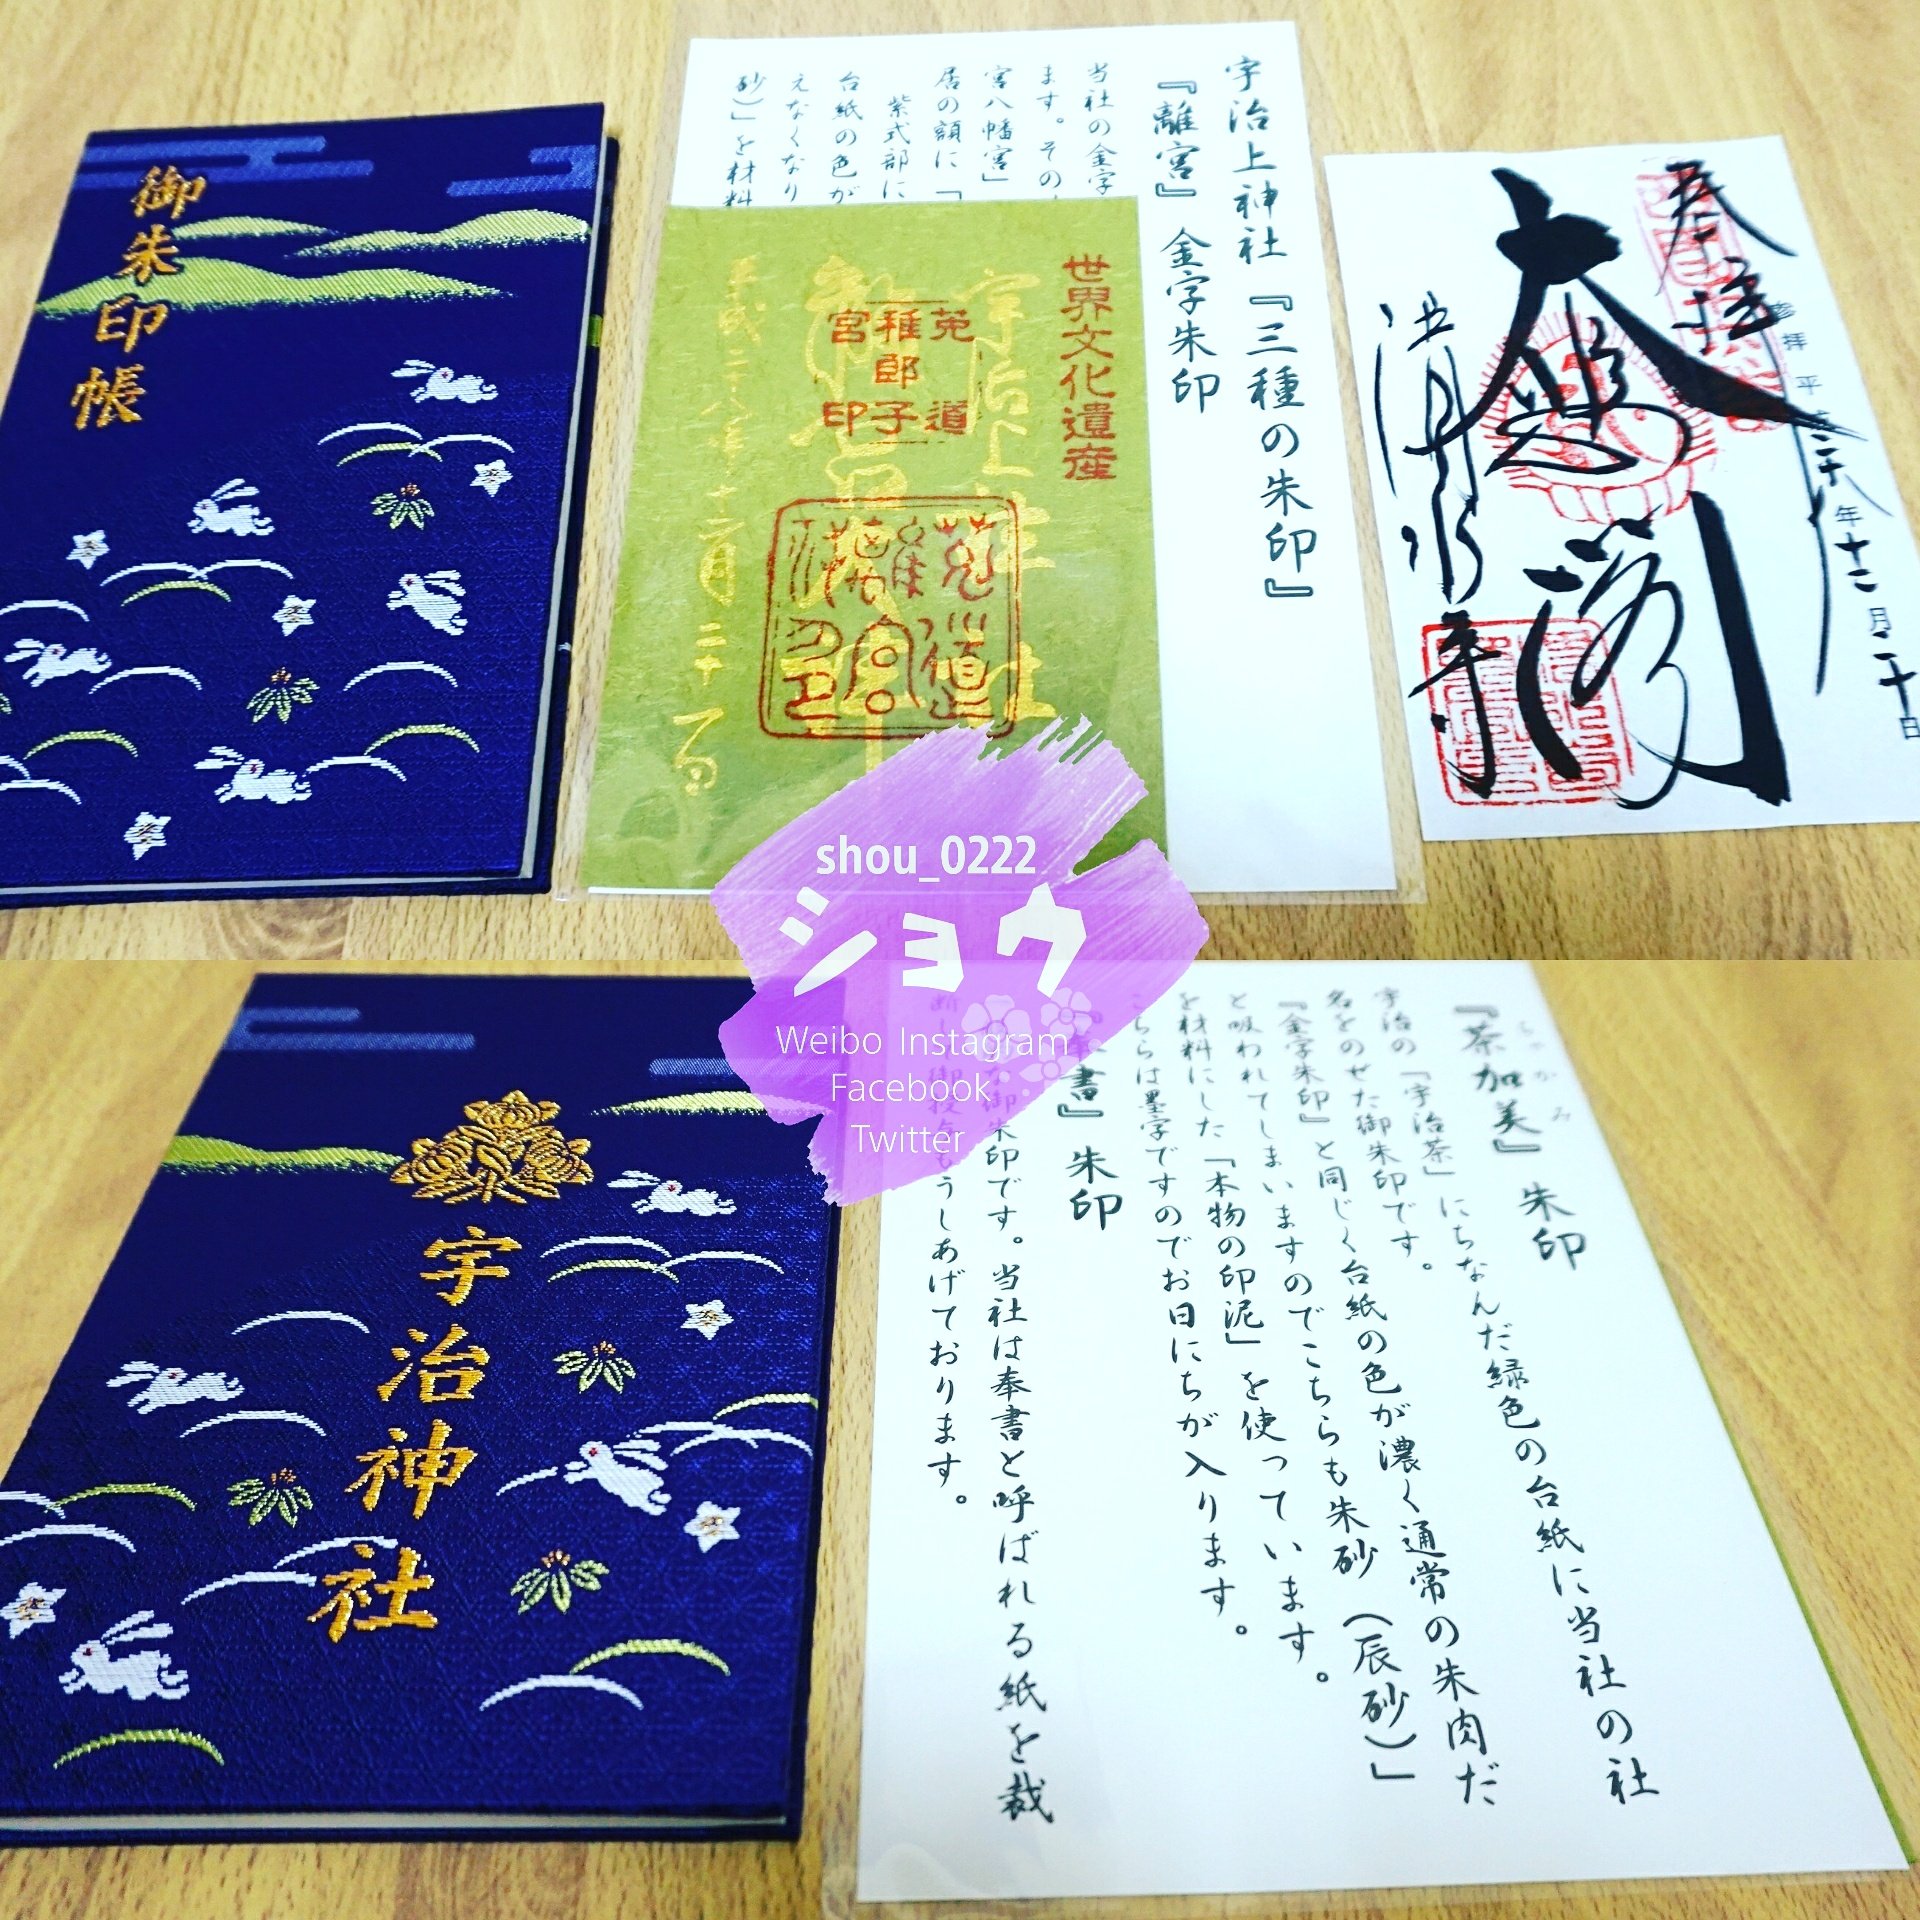 御朱印帳
宇治上神社『三種の朱印』
『離宮』金字朱印
当社の金字
ます。その
宮八幡宮」
居の額に「
紫式部に
台紙の色が
えなくなり
砂)」を材料
世界文化遺産
宇治上神社
平成二十八年十二月二十日
菟道
稚郎子
宮印
奉拝
参拝 平成二十八年十二月二十日
大悲閣
清水寺
shou_0222
ショウ
Weibo Instagram
Facebook
Twitter
宇治神社
『茶加美』朱印
ちゃかみ
宇治の「宇治茶」にちなんだ緑色の台紙に当社の社
名をのせた御朱印です。
『金字朱印』と同じく台紙の色が濃く通常の朱肉だ
と吸われてしまいますのでこちらも朱砂(辰砂)」
を材料にした「本物の印泥」を使っています。
こちらは墨字ですのでお日にちが入ります。
書』朱印
御朱印です。当社は奉書と呼ばれる紙を裁
うしあげております。